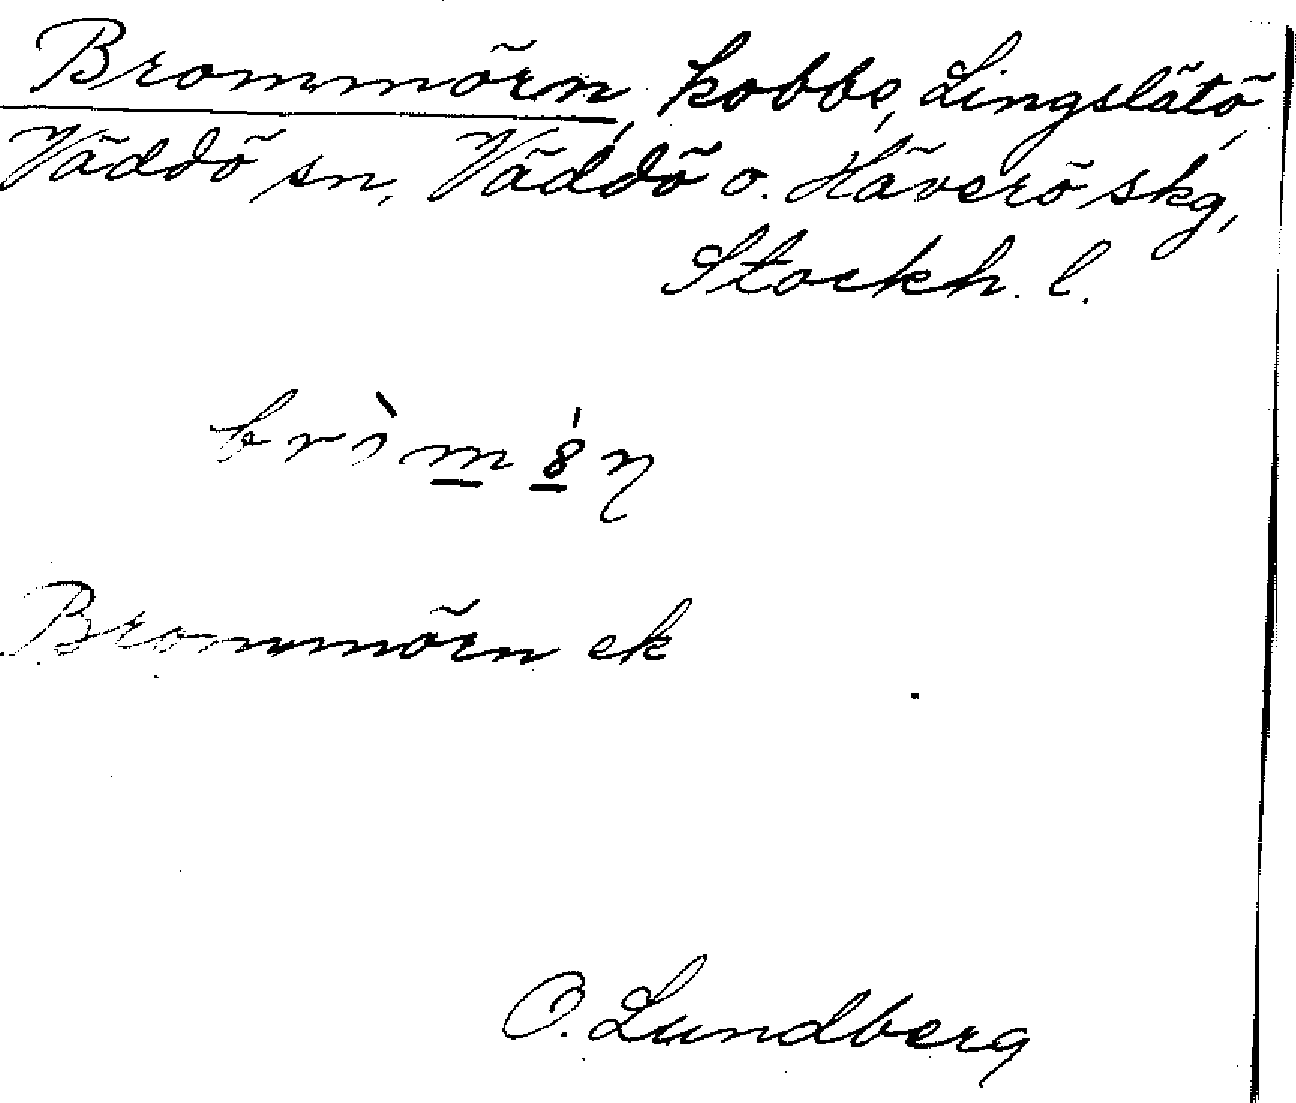 Brommörn, kobbe, Lingslätö,
Väddö sn, Väddö o. Häverö skg,
Stockh. l.
Brommörn ek
O. Lundberg